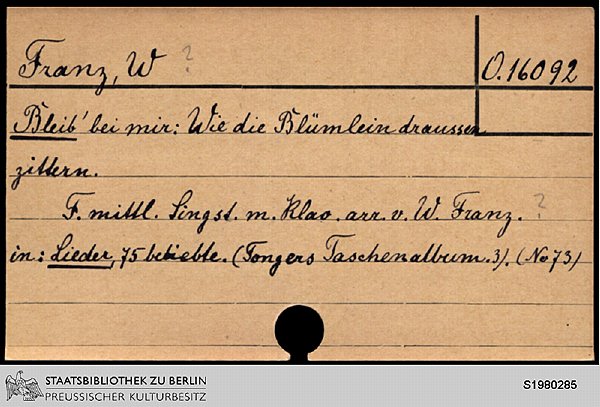 Franz, W ?
O. 16092
Bleib' bei mir: Wie die Blümlein draussen
zittern.
F. mittl. Singst. m. Klav. arr. v. W. Franz. ?
in: Lieder, 75 beliebte. (Tongers Taschenalbum. 3). (No 73)
STAATSBIBLIOTHEK ZU BERLIN
PREUSSISCHER KULTURBESITZ
S1980285